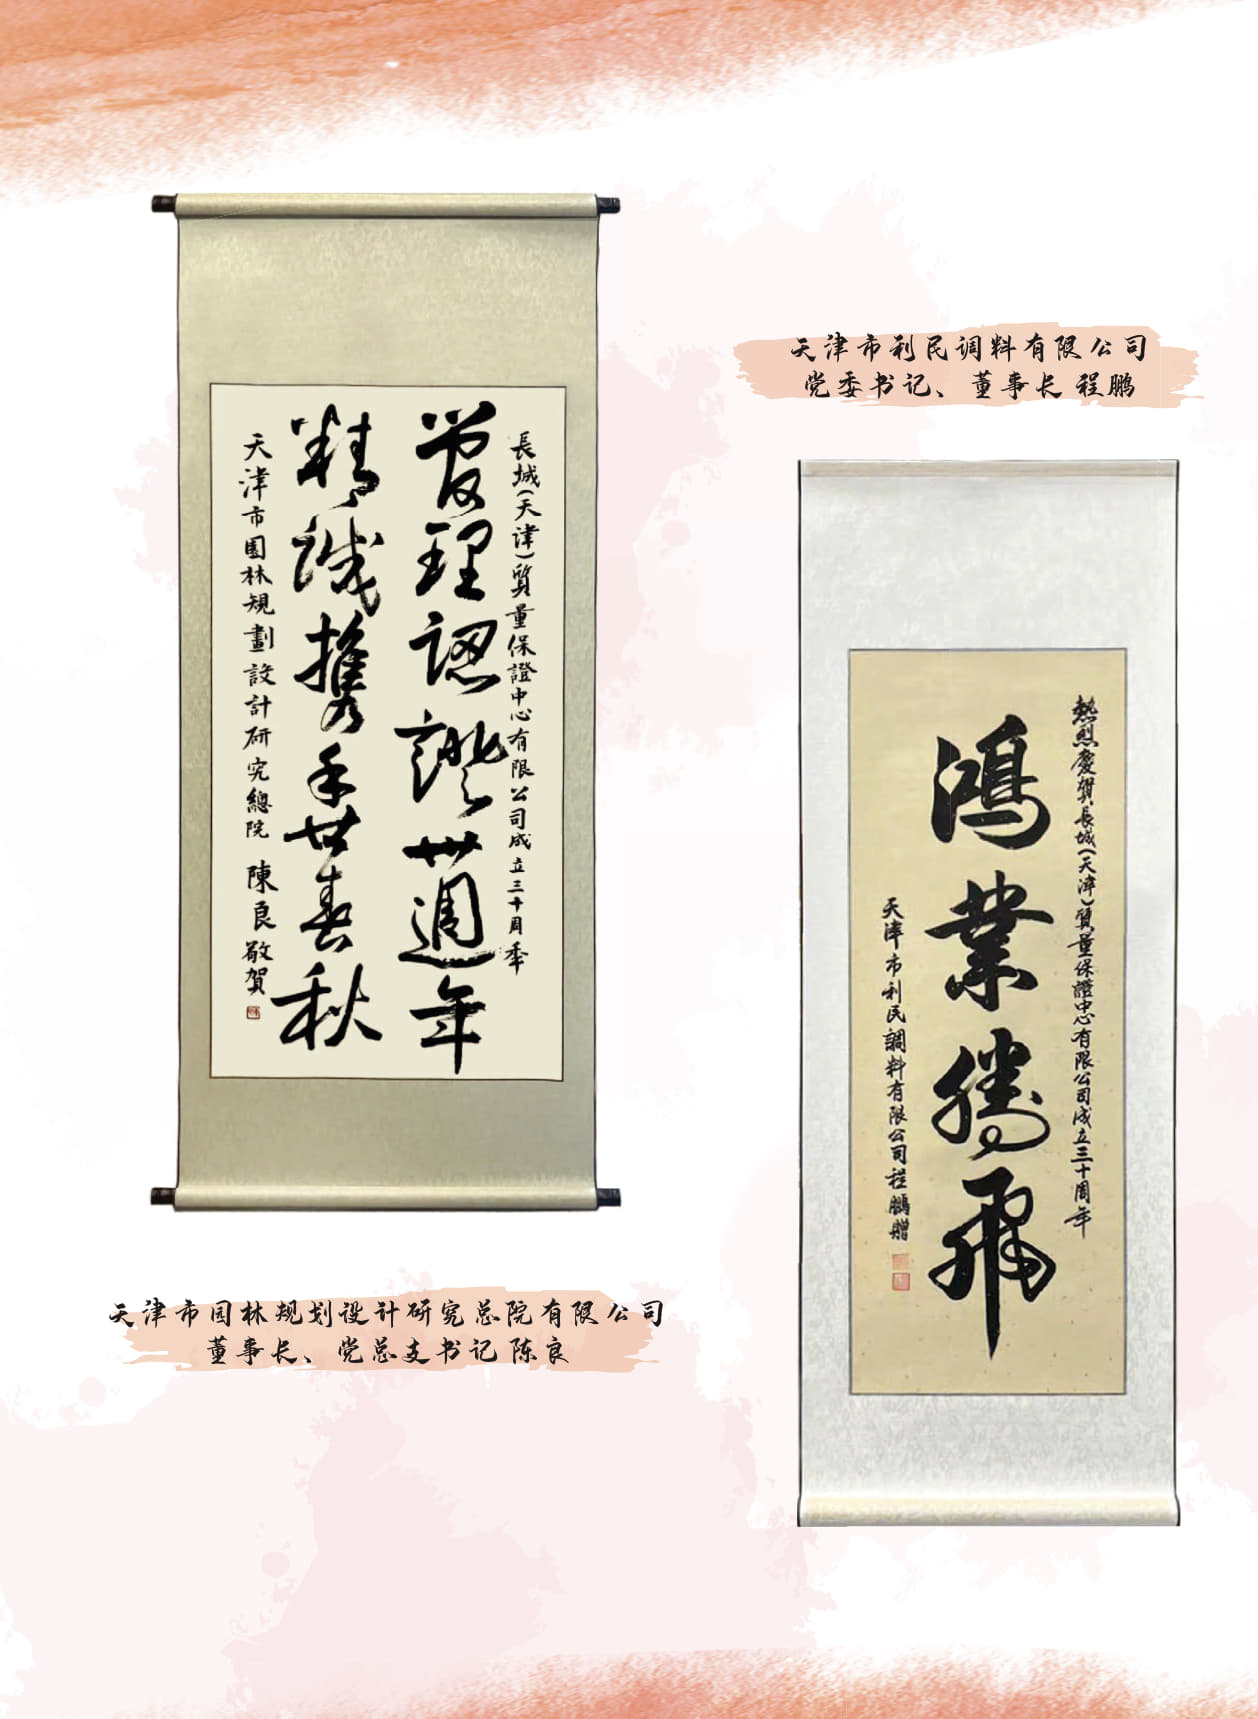 長城(天津)質量保證中心有限公司成立三十周年
管理認證卅週年
精誠攜手廿春秋
天津市園林規劃設計研究總院 陳良敬賀
天津市园林规划设计研究总院有限公司
董事长、党总支书记 陈良
天津市利民调料有限公司
党委书记、董事长 程鹏
熱烈慶賀長城(天津)質量保證中心有限公司成立三十周年
鴻業騰飛
天津市利民調料有限公司程鵬贈